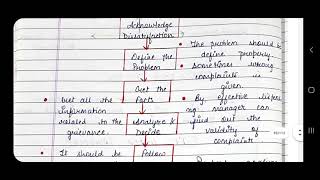 Acknowledge
Dissatisfaction
Define the
Problem
• The problem should be
define properly.
• sometimes wrong
complaints is
given.
Get the
Facts
• Get all the
information
related to the
grievance.
• By effective listen
ing manager can
find out the
validity of
complaint
Analyse &
Decide
• It should be
Follow